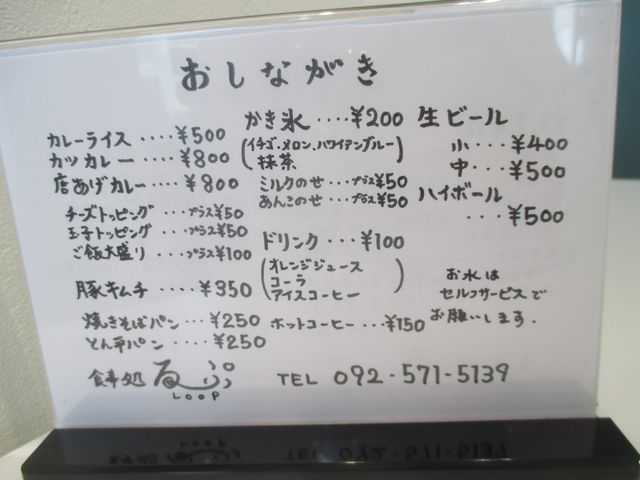 おしながき
カレーライス ････ ¥500
カツカレー ････ ¥800
唐あげカレー ････ ¥800
チーズトッピング ････ プラス¥50
玉子トッピング ････ プラス¥50
ご飯大盛り ････ プラス¥100
豚キムチ ････ ¥350
焼きそばパン ･･･ ¥250
とん平パン ････ ¥250
かき氷 ････ ¥200
(イチゴ、メロン、ハワイアンブルー
抹茶)
ミルクのせ ･･･ プラス¥50
あんこのせ ･･･ プラス¥50
ドリンク ･･･ ¥100
(オレンジジュース
コーラ
アイスコーヒー)
ホットコーヒー ･･･ ¥150
生ビール
小 ･･･ ¥400
中 ･･･ ¥500
ハイボール
･･･ ¥500
お水は
セルフサービスで
お願いします.
食事処 るーぷ
LOOP
TEL 092-571-5139